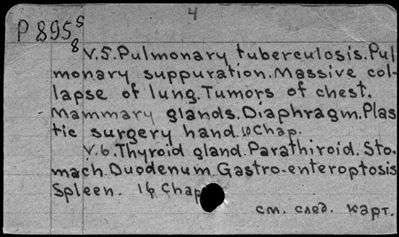 4
P 895 s
8
V.5. Pulmonary tuberculosis. Pul
monary suppuration. Massive col-
lapse of lung. Tumors of chest.
Mammary glands. Diaphragm. Plas
tic surgery hand. 10 Chap.
V.6. Thyroid gland. Parathiroid. Sto-
mach. Duodenum. Gastro-enteroptosis
Spleen. 16 Chap
см. след. карт.